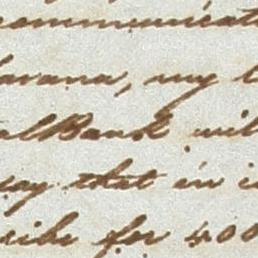 communicat
avana, my
al Bank wil
say that in i
cribe for 400